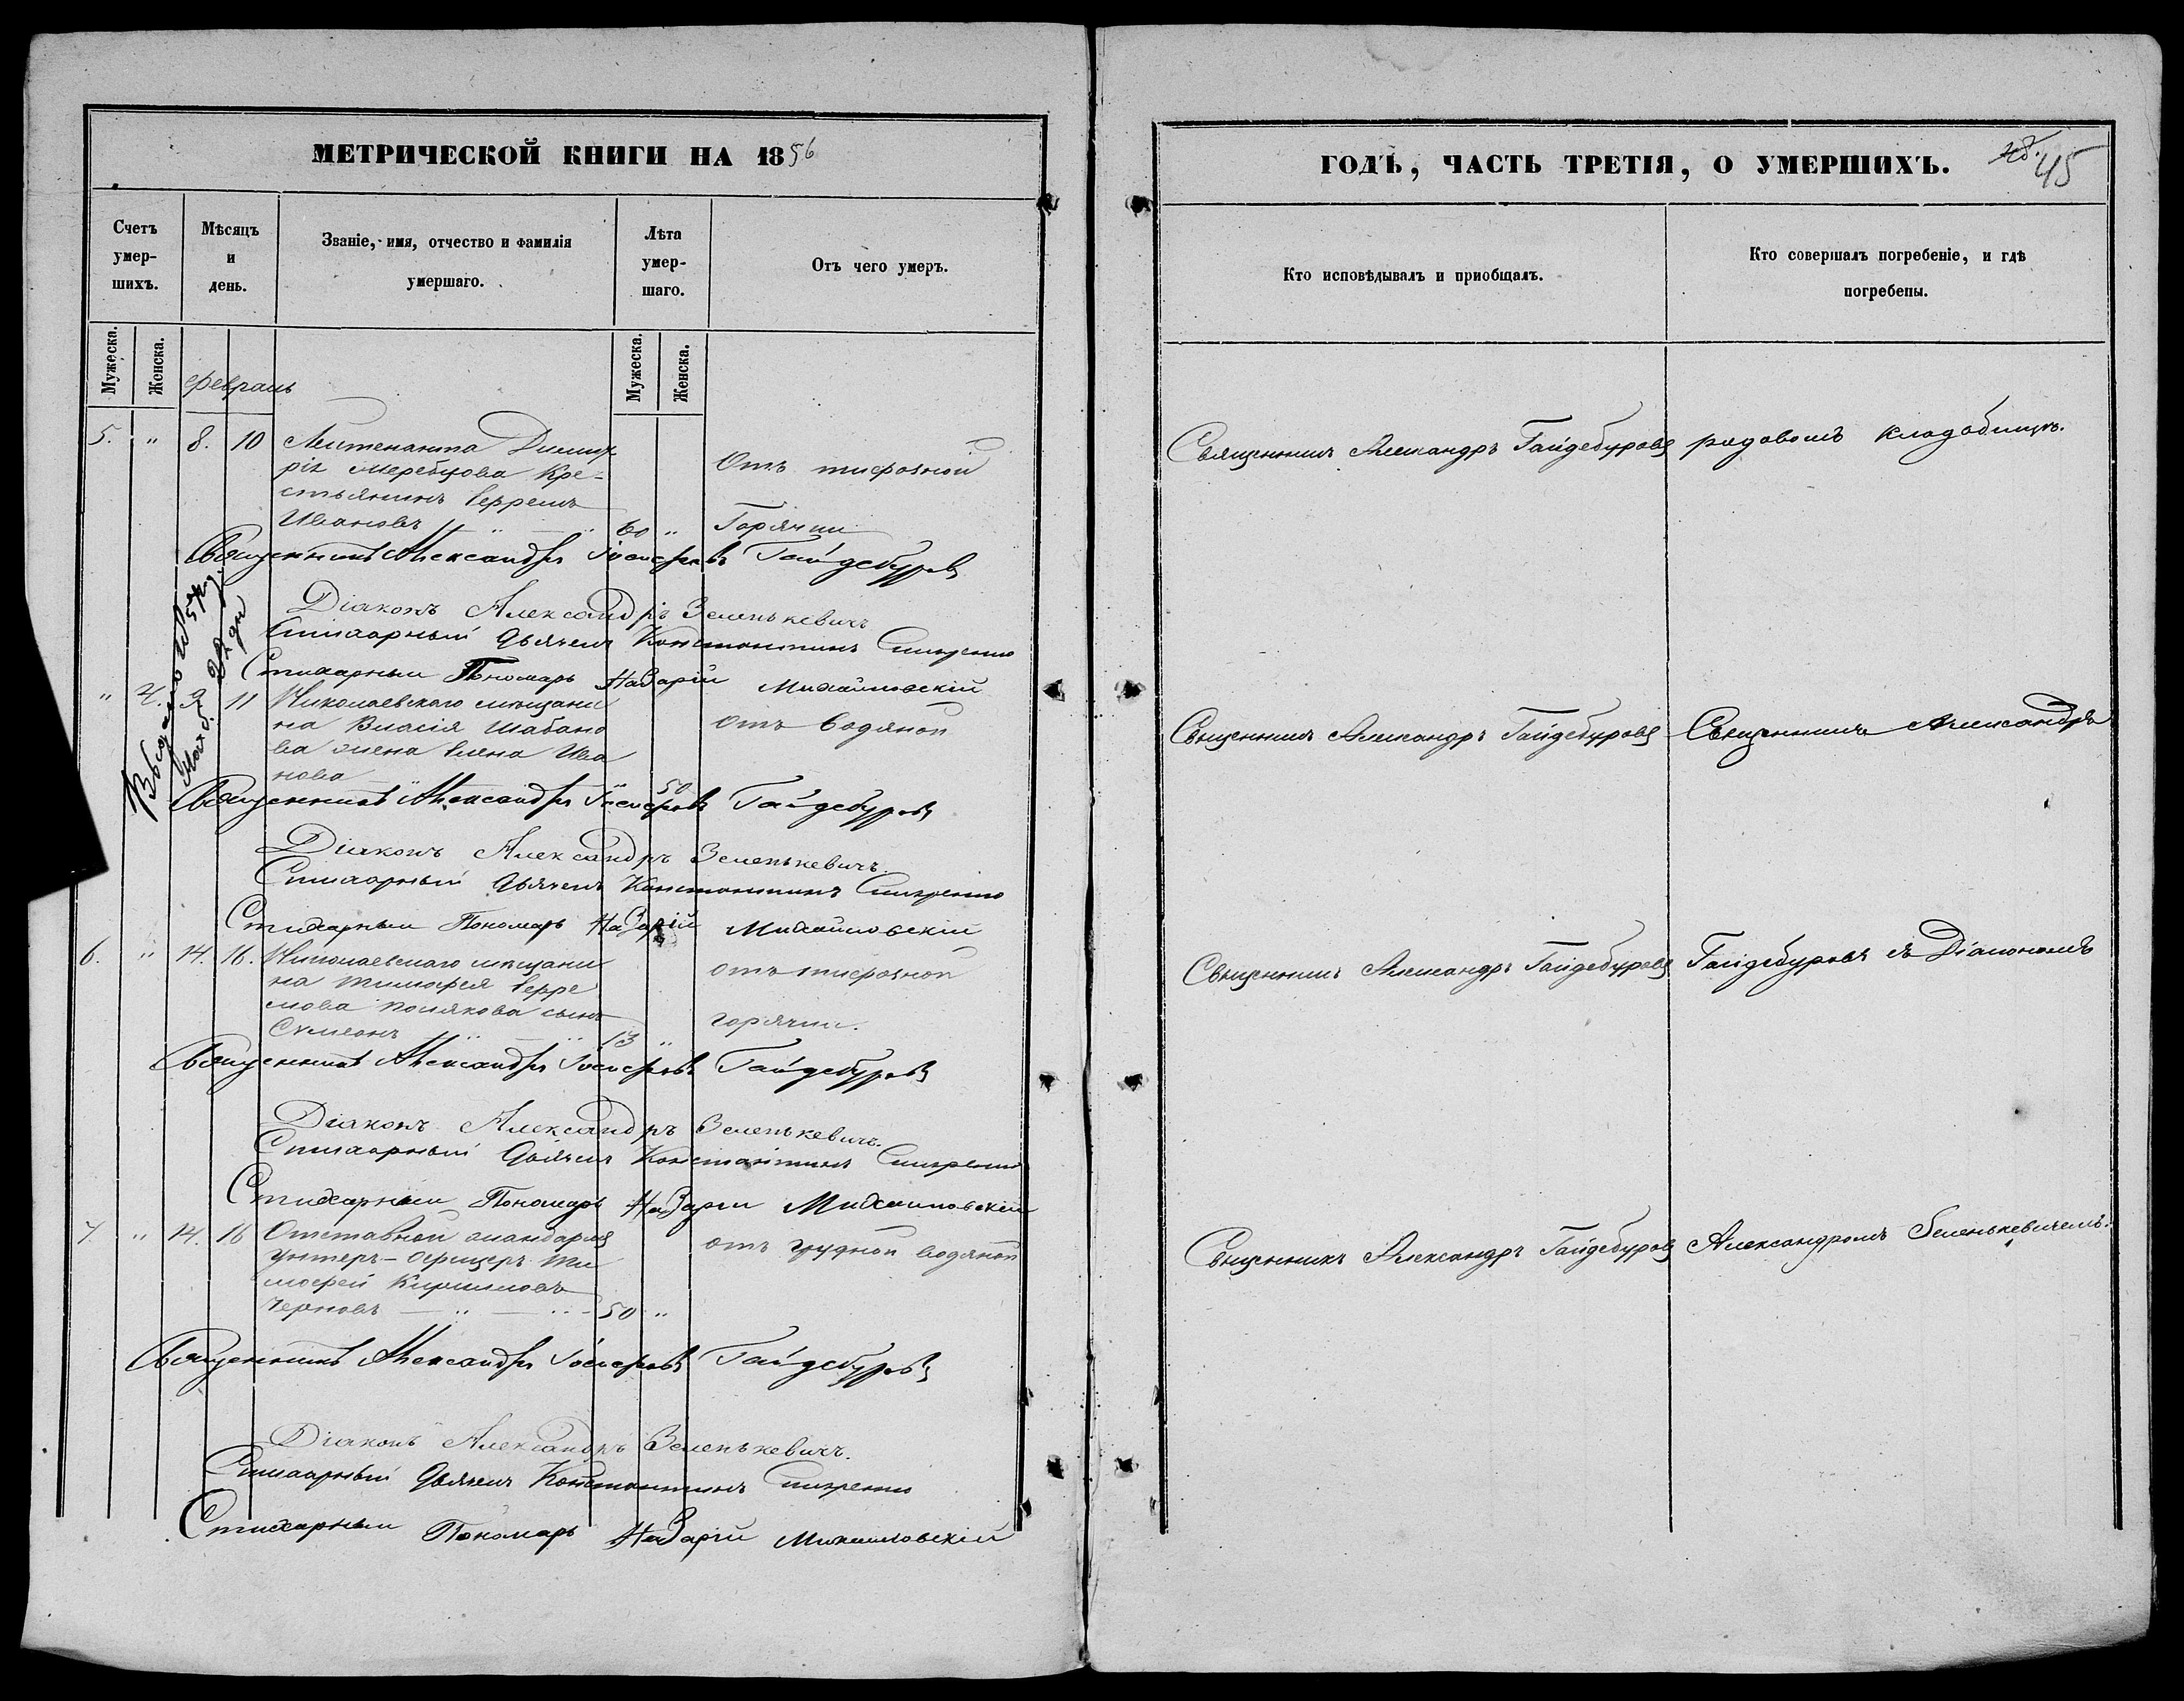 МЕТРИЧЕСКОЙ КНИГИ НА 1856
Счетъ умер-шихъ.
Мѣсяцъ и день.
Званіе, имя, отчество и фамилія умершаго.
Лѣта умер-шаго.
Отъ чего умеръ.
Мужеска.
Женска.
Мужеска.
Женска.
февраль
5. " 8. 10 Лейтенанта Димит
рія Жеребцова Кре-
стьянинъ Ефремъ
Ивановъ " 60 "
Отъ тифозной
Горячки
Священникъ Александръ Іосифовъ Гайдебуровъ
Діаконъ Александръ Зеленькевичъ
Стихарный Дьячекъ Константинъ
Стихарный Пономарь Назарій Михайловскій
" 4. 9 11 Николаевскаго мѣщани
на Власія Шабано
ва жена Елена Ива
нова 50
отъ водяной
Священникъ Александръ Іосифовъ Гайдебуровъ
Діаконъ Александръ Зеленькевичъ.
Стихарный Дьячекъ Константинъ
Стихарный Пономарь Назарій Михайловскій
6. " 14. 16. Николаевскаго мѣщани
на Тимофея Ефре
мова Полякова сынъ
Сумеонъ " 13 "
отъ тифозной
горячки.
Священникъ Александръ Іосифовъ Гайдебуровъ
Діаконъ Александръ Зеленькевичъ.
Стихарный Дьячекъ Константинъ
Стихарный Пономарь Назарій Михайловскій
7. " 14. 16 Отставной жандармъ
унтеръ-офицеръ Ти
мофей Кирилловъ
Черновъ " 50 "
отъ грудной водяной
Священникъ Александръ Іосифовъ Гайдебуровъ
Діаконъ Александръ Зеленькевичъ.
Стихарный Дьячекъ Константинъ
Стихарный Пономарь Назарій Михайловскій
ГОДЪ, ЧАСТЬ ТРЕТІЯ, О УМЕРШИХЪ.
45
Кто исповѣдывалъ и приобщалъ.
Кто совершалъ погребеніе, и гдѣ погребены.
Священникъ Александръ Гайдебуровъ
Священникъ Александръ Гайдебуровъ
Священникъ Александръ Гайдебуровъ
Священникъ Александръ Гайдебуровъ
кладбищѣ.
Священникъ Александръ
Гайдебуровъ съ Діакономъ
Александромъ Зеленькевичемъ.